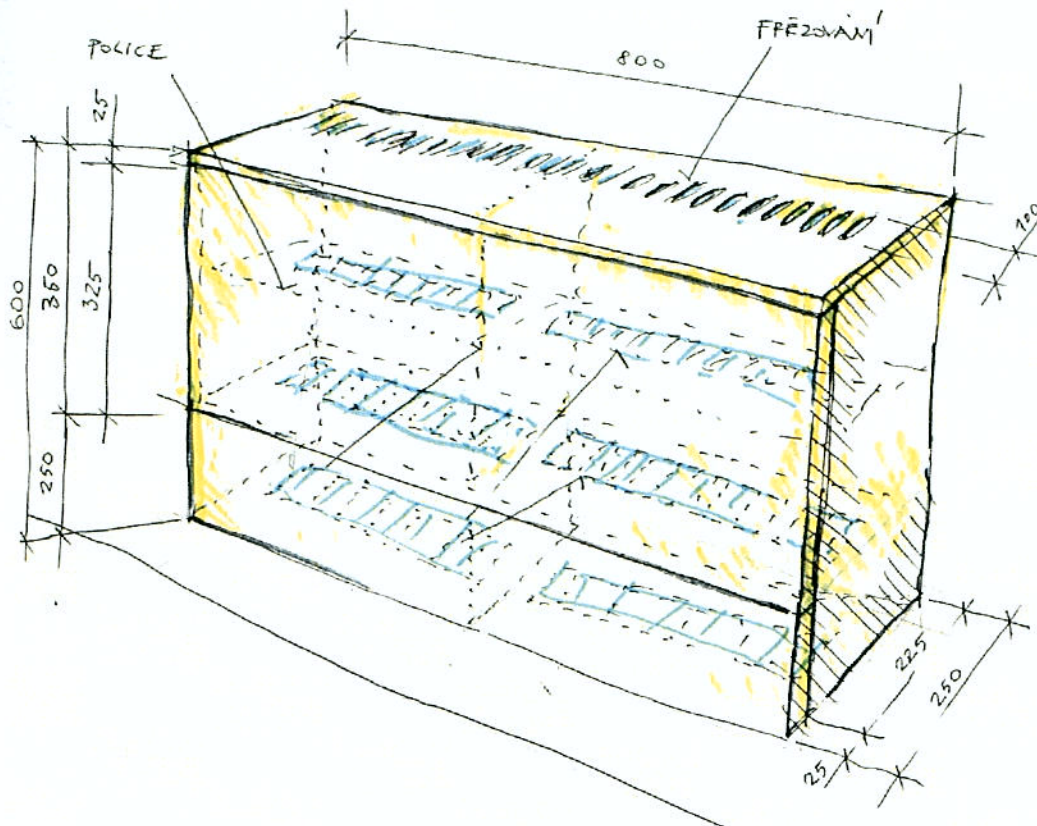 POLICE
FRÉZOVÁNÍ
800
25
600
350
325
250
100
225
250
25